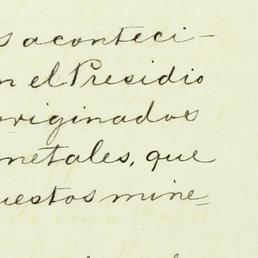 s aconteci-
n el Presidio
originados
metales, que
uestos mine=